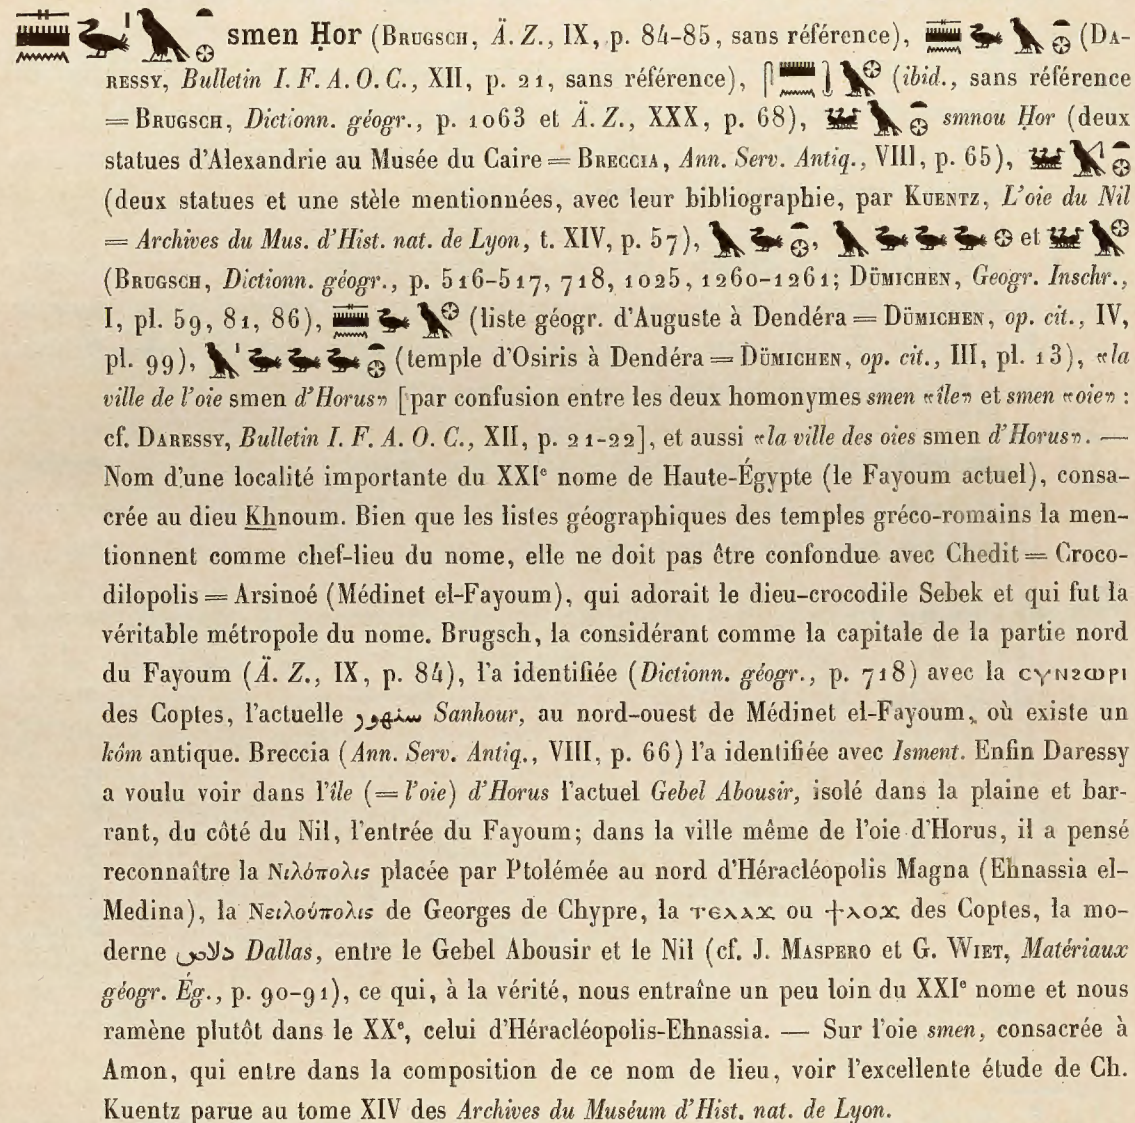 smen Ḥor (Brugsch, Ä. Z., IX, p. 84-85, sans référence), (Da-
ressy, Bulletin I. F. A. O. C., XII, p. 21, sans référence), (ibid., sans référence
= Brugsch, Dictionn. géogr., p. 1063 et Ä. Z., XXX, p. 68), smnou Ḥor (deux
statues d'Alexandrie au Musée du Caire = Breccia, Ann. Serv. Antiq., VIII, p. 65),
(deux statues et une stèle mentionnées, avec leur bibliographie, par Kuentz, L'oie du Nil
= Archives du Mus. d'Hist. nat. de Lyon, t. XIV, p. 57), , et
(Brugsch, Dictionn. géogr., p. 516-517, 718, 1025, 1260-1261; Dümichen, Geogr. Inschr.,
I, pl. 59, 81, 86), (liste géogr. d'Auguste à Dendéra = Dümichen, op. cit., IV,
pl. 99), (temple d'Osiris à Dendéra = Dümichen, op. cit., III, pl. 13), «la
ville de l'oie smen d'Horus» [par confusion entre les deux homonymes smen «île» et smen «oie» :
cf. Daressy, Bulletin I. F. A. O. C., XII, p. 21-22], et aussi «la ville des oies smen d'Horus». —
Nom d'une localité importante du XXIe nome de Haute-Égypte (le Fayoum actuel), consa-
crée au dieu Khnoum. Bien que les listes géographiques des temples gréco-romains la men-
tionnent comme chef-lieu du nome, elle ne doit pas être confondue avec Chedit = Croco-
dilopolis = Arsinoé (Médinet el-Fayoum), qui adorait le dieu-crocodile Sebek et qui fut la
véritable métropole du nome. Brugsch, la considérant comme la capitale de la partie nord
du Fayoum (Ä. Z., IX, p. 84), l'a identifiée (Dictionn. géogr., p. 718) avec la ⲥⲩⲛϩⲱⲣⲓ
des Coptes, l'actuelle سنهور Sanhour, au nord-ouest de Médinet el-Fayoum, où existe un
kôm antique. Breccia (Ann. Serv. Antiq., VIII, p. 66) l'a identifiée avec Isment. Enfin Daressy
a voulu voir dans l'île (= l'oie) d'Horus l'actuel Gebel Abousir, isolé dans la plaine et bar-
rant, du côté du Nil, l'entrée du Fayoum; dans la ville même de l'oie d'Horus, il a pensé
reconnaître la Νιλόπολις placée par Ptolémée au nord d'Héracléopolis Magna (Ehnassia el-
Medina), la Νειλούπολις de Georges de Chypre, la ⲧⲉⲗⲁϫ ou ϯⲗⲟϫ des Coptes, la mo-
derne دلاص Dallas, entre le Gebel Abousir et le Nil (cf. J. Maspero et G. Wiet, Matériaux
géogr. Ég., p. 90-91), ce qui, à la vérité, nous entraîne un peu loin du XXIe nome et nous
ramène plutôt dans le XXe, celui d'Héracléopolis-Ehnassia. — Sur l'oie smen, consacrée à
Amon, qui entre dans la composition de ce nom de lieu, voir l'excellente étude de Ch.
Kuentz parue au tome XIV des Archives du Muséum d'Hist. nat. de Lyon.